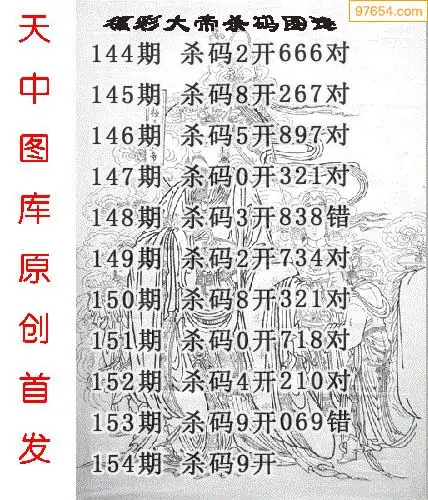 97654.com
福彩大帝杀码图谜
144期 杀码2开666对
145期 杀码8开267对
146期 杀码5开897对
147期 杀码0开321对
148期 杀码3开838错
149期 杀码2开734对
150期 杀码8开321对
151期 杀码0开718对
152期 杀码4开210对
153期 杀码9开069错
154期 杀码9开
天中图库原创首发